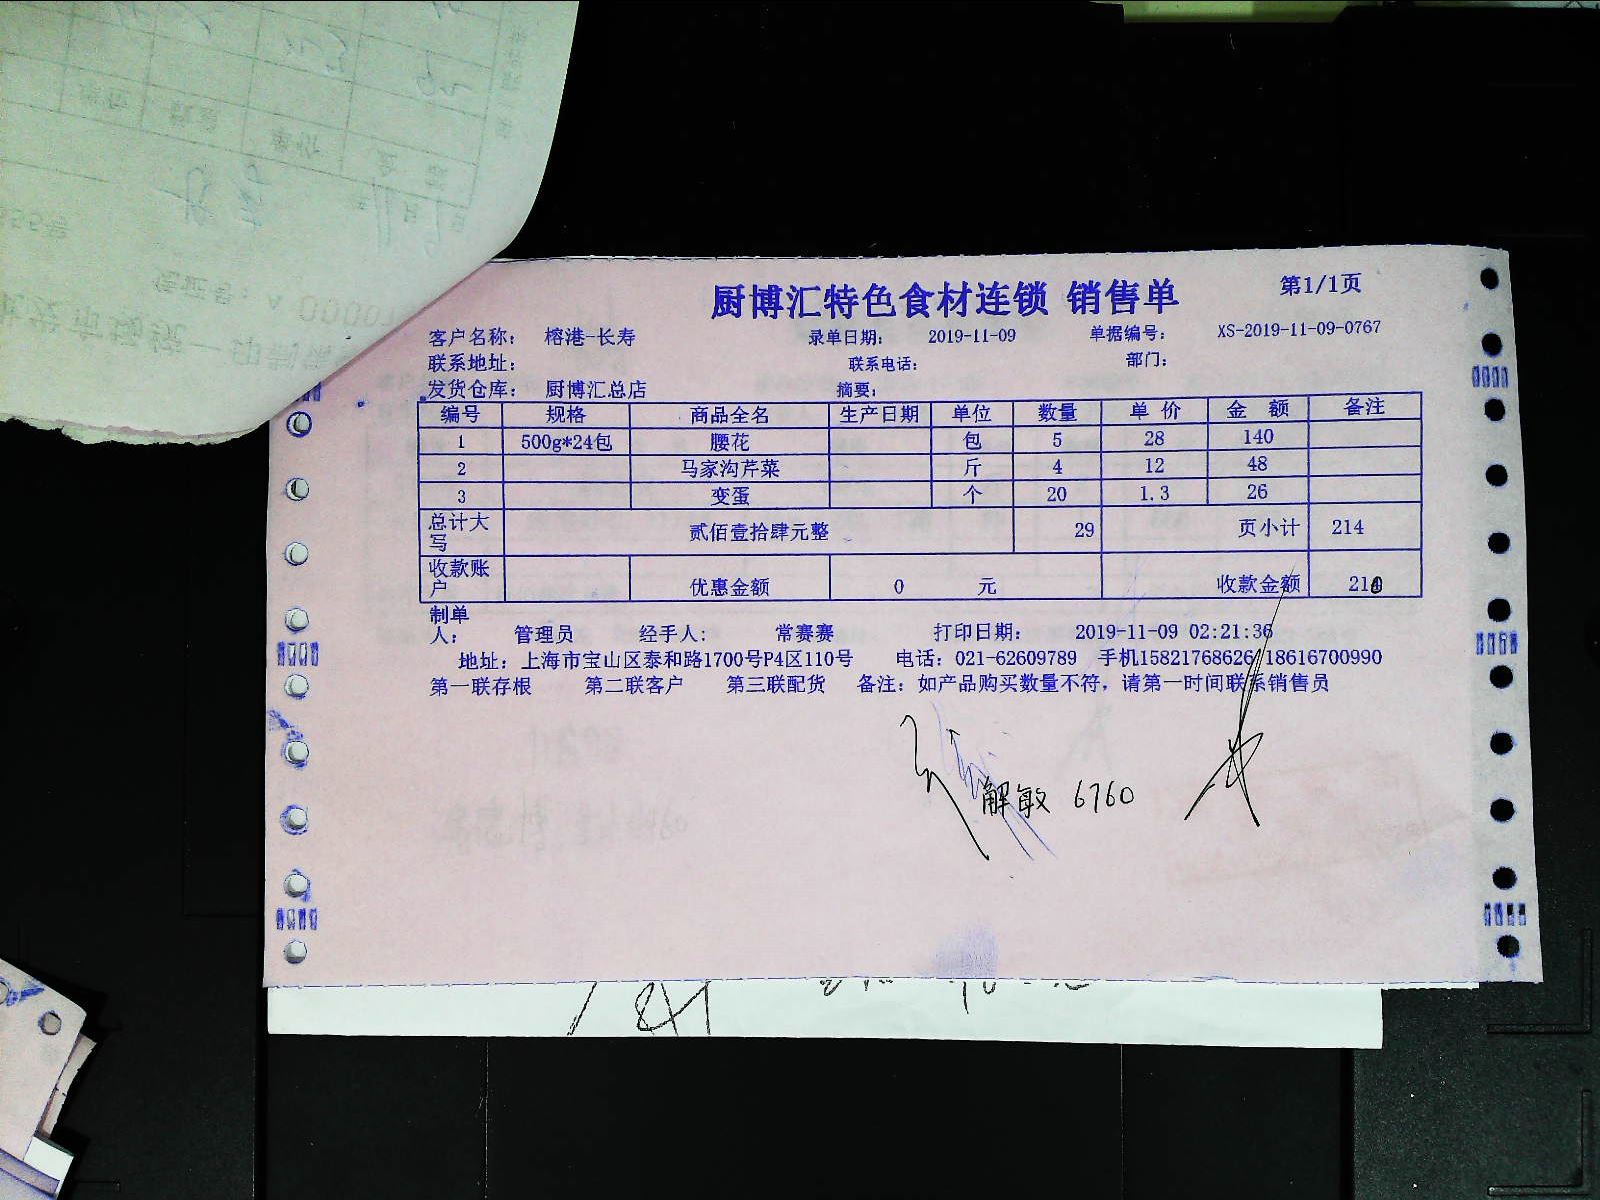 厨博汇特色食材连锁 销售单 第1/1页
客户名称： 榕港-长寿 录单日期： 2019-11-09 单据编号： XS-2019-11-09-0767
联系地址： 联系电话： 部门：
发货仓库： 厨博汇总店 摘要：
编号 规格 商品全名 生产日期 单位 数量 单 价 金 额 备注
1 500g*24包 腰花 包 5 28 140
2 马家沟芹菜 斤 4 12 48
3 变蛋 个 20 1.3 26
总计大写 贰佰壹拾肆元整 29 页小计 214
收款账户 优惠金额 0 元 收款金额 21
制单人： 管理员 经手人： 常赛赛 打印日期： 2019-11-09 02:21:36
地址：上海市宝山区泰和路1700号P4区110号 电话：021-62609789 手机15821768626 18616700990
第一联存根 第二联客户 第三联配货 备注：如产品购买数量不符，请第一时间联系销售员
解敏 6760